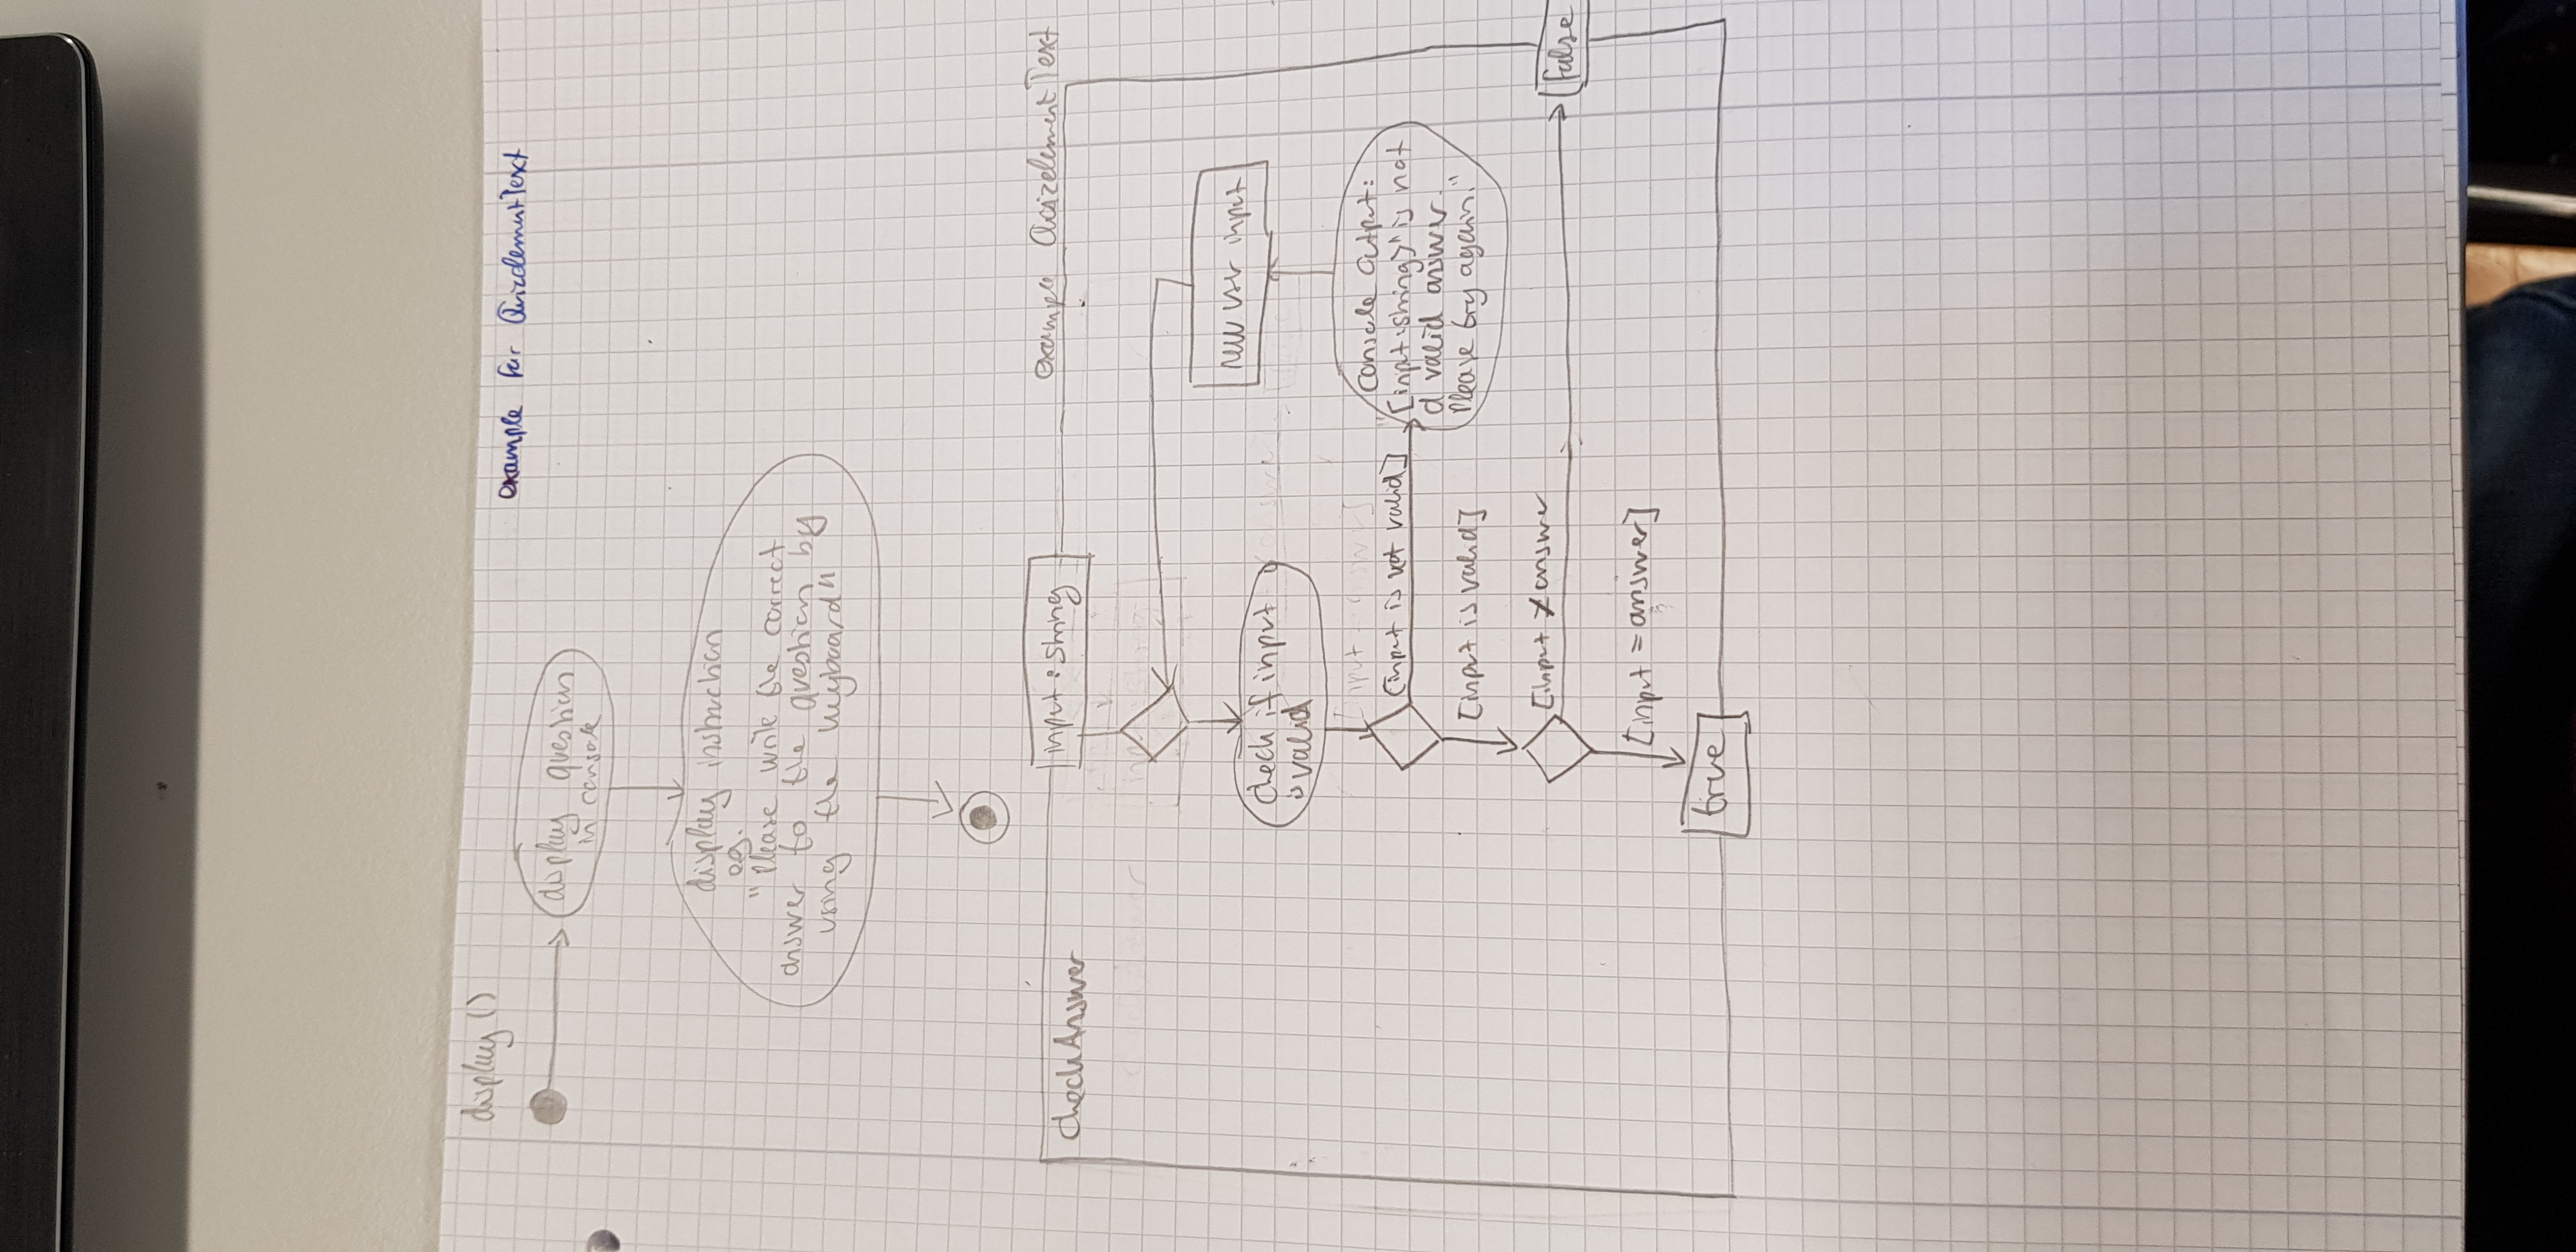 display ()
example for QuizelementText
display question
in console
display instruction
e.g.
"Please write the correct
answer to the question by
using the keyboard"
input : string
example QuizelementText
checkAnswer
new user input
check if input
is valid
console output:
[input is not valid]
"[input:string]" is not
a valid answer.
Please try again."
[input is valid]
[input ≠ answer
false
[input = answer]
true